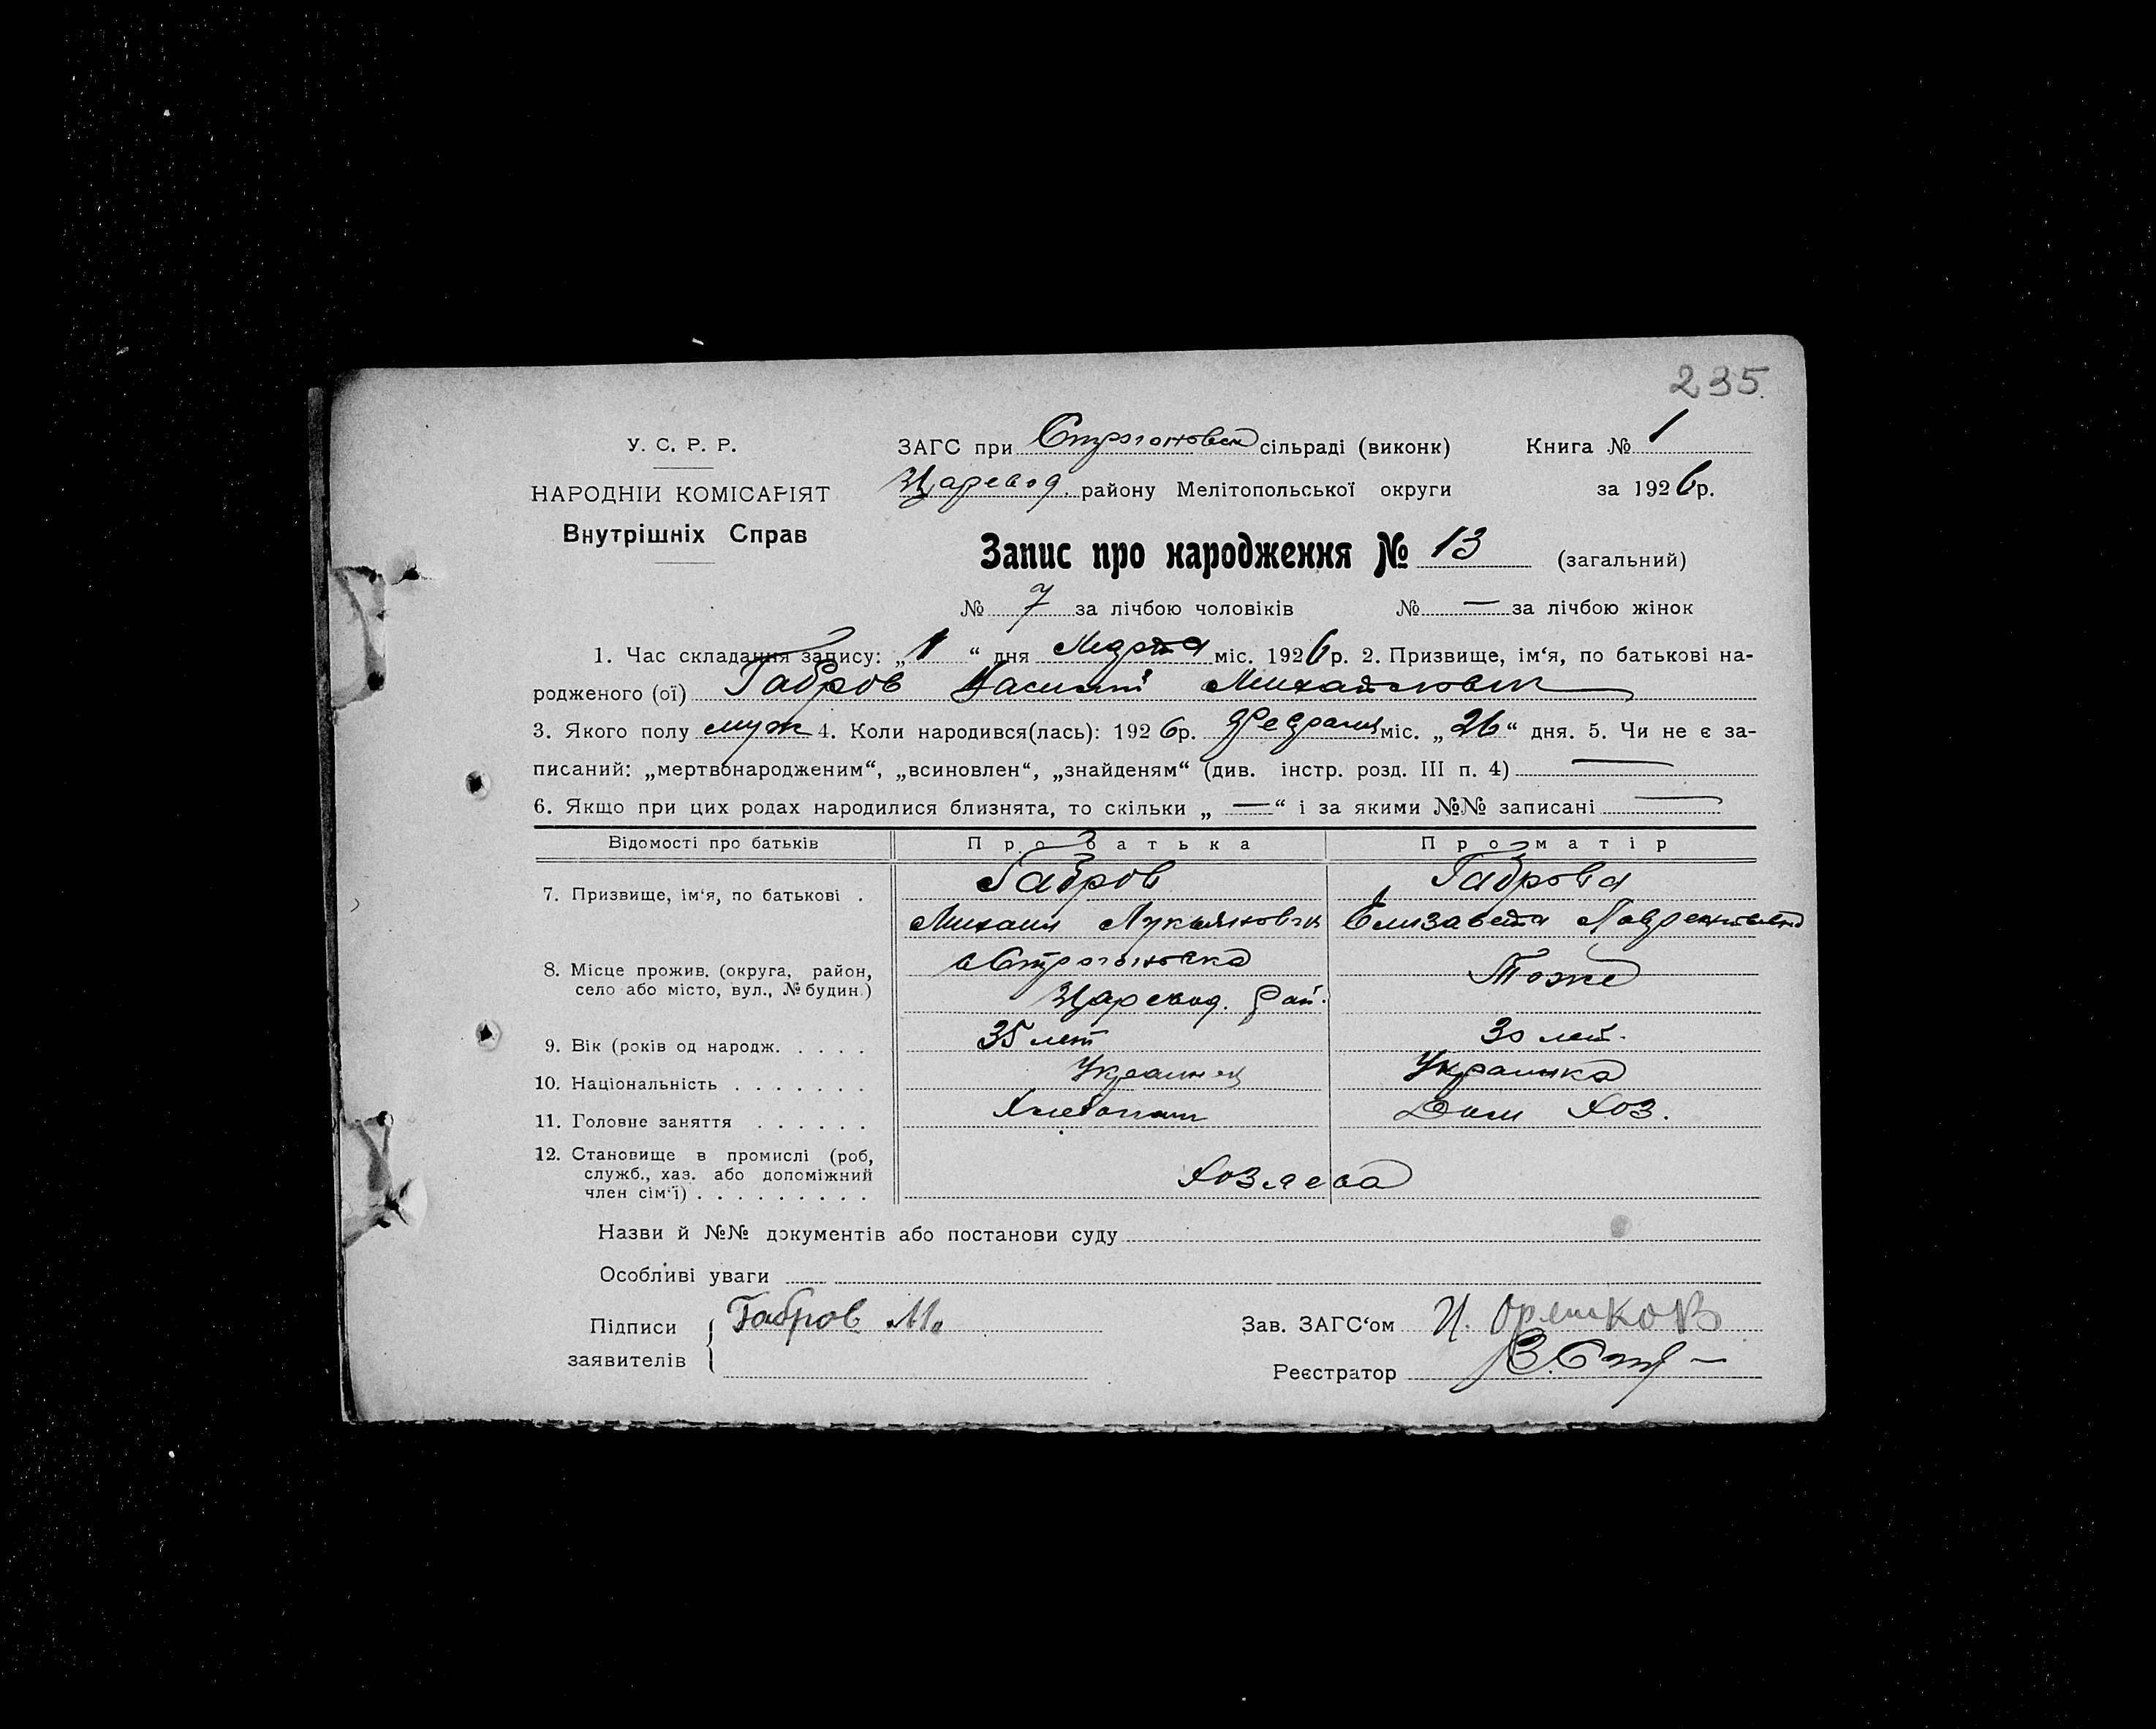 235.
У. С. Р. Р.
НАРОДНІЙ КОМІСАРІЯТ
Внутрішніх Справ
ЗАГС при Строгоновск сільраді (виконк) Книга № 1
Царевод. району Мелітопольської округи за 1926 р.
Запис про народження № 13 (загальний)
№ 7 за лічбою чоловіків № — за лічбою жінок
1. Час складання запису: „1“ дня Марта міс. 1926 р. 2. Призвище, ім‘я, по батькові на-
родженого (ої) Габров Василий Михайлович
3. Якого полу муж 4. Коли народився(лась): 1926 р. Февраля міс. „26“ дня. 5. Чи не є за-
писаний: „мертвонародженим“, „всиновлен“, „знайденям“ (див. інстр. розд. III п. 4) —
6. Якщо при цих родах народилися близнята, то скільки „ — “ і за якими №№ записані —
Відомості про батьків Про батька Про матір
7. Призвище, ім‘я, по батькові . Габров Габрова
Михаил Лукьянович Елизавета Лаврентьевна
8. Місце прожив. (округа, район, село або місто, вул., № будин.) с Строгоновка Тоже
Царевод. Рай.
9. Вік (років од народж. . . . . 35 лет 30 лет.
10. Національність . . . . . . . Украинец Украинка
11. Головне заняття . . . . . . Хлебопаш Дом Хоз.
12. Становище в промислі (роб,
служб., хаз. або допоміжний
член сім‘ї) . . . . . . . . . Хозяева
Назви й №№ документів або постанови суду
Особливі уваги
Підписи заявителів Габров М.
Зав. ЗАГС‘ом И. Орешков
Реєстратор